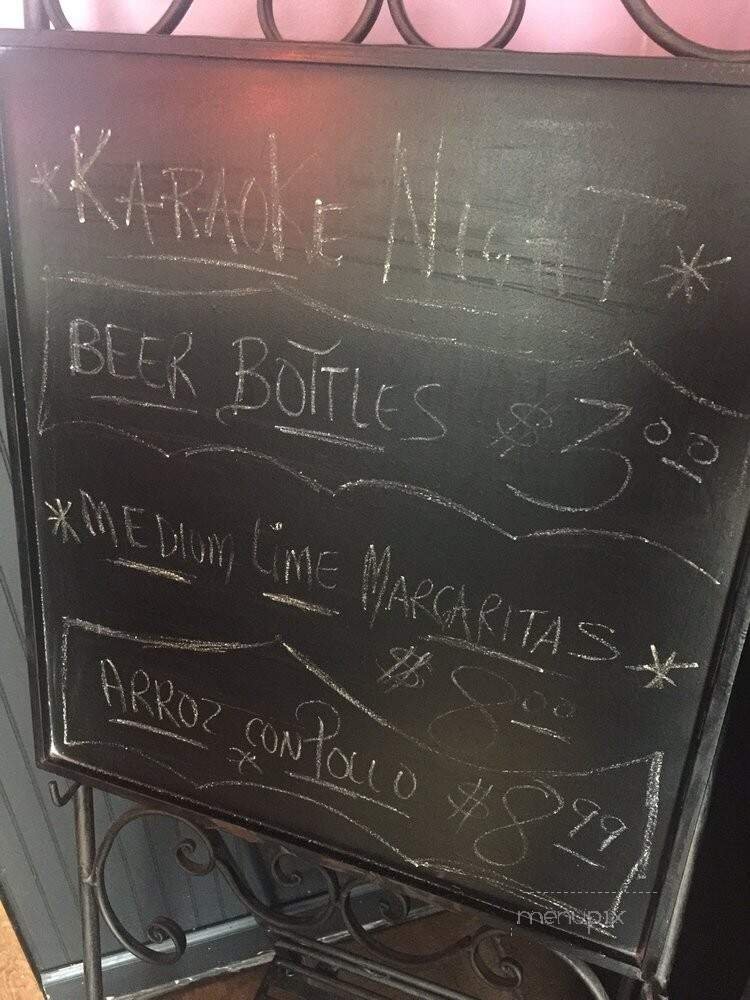 *KARAOKE NIGHT*
BEER BOTTLES $3.00
*MEDIUM LIME MARGARITAS*
$8.00
ARROZ CON POLLO $8.99
menupix